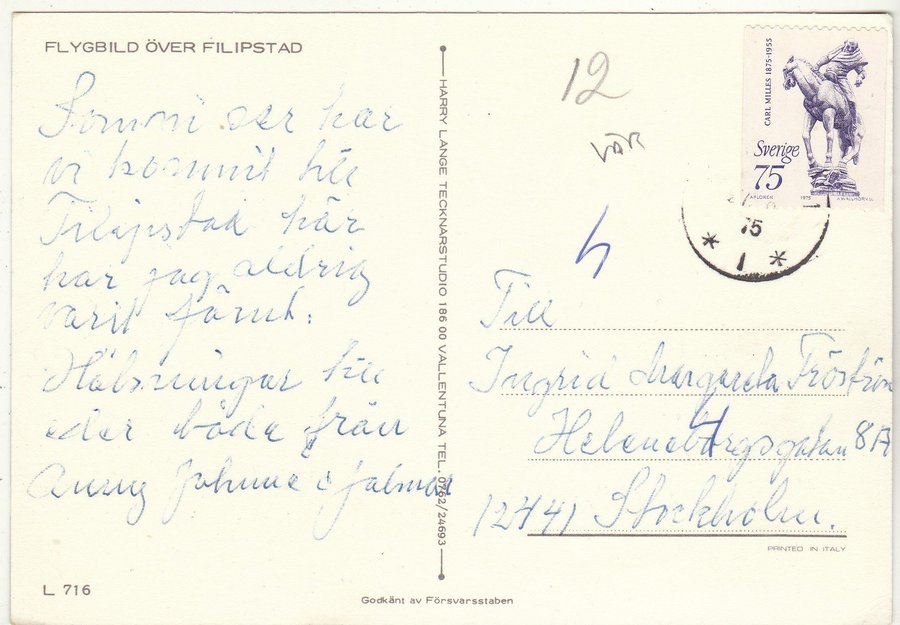 FLYGBILD ÖVER FILIPSTAD
Som ni ser har
vi kommit till
Filipstad här
har jag aldrig
varit förut.
Hälsningar till
eder båda från
Anny
HARRY LANGE TECKNARSTUDIO 186 00 VALLENTUNA TEL. 0762/24693
12
CARL MILLES 1875-1955
Sverige
75
1975
75
* 1 *
Till
Ingrid Margareta
Heleneborgsgatan 8A
12441 Stockholm.
PRINTED IN ITALY
L 716
Godkänt av Försvarsstaben